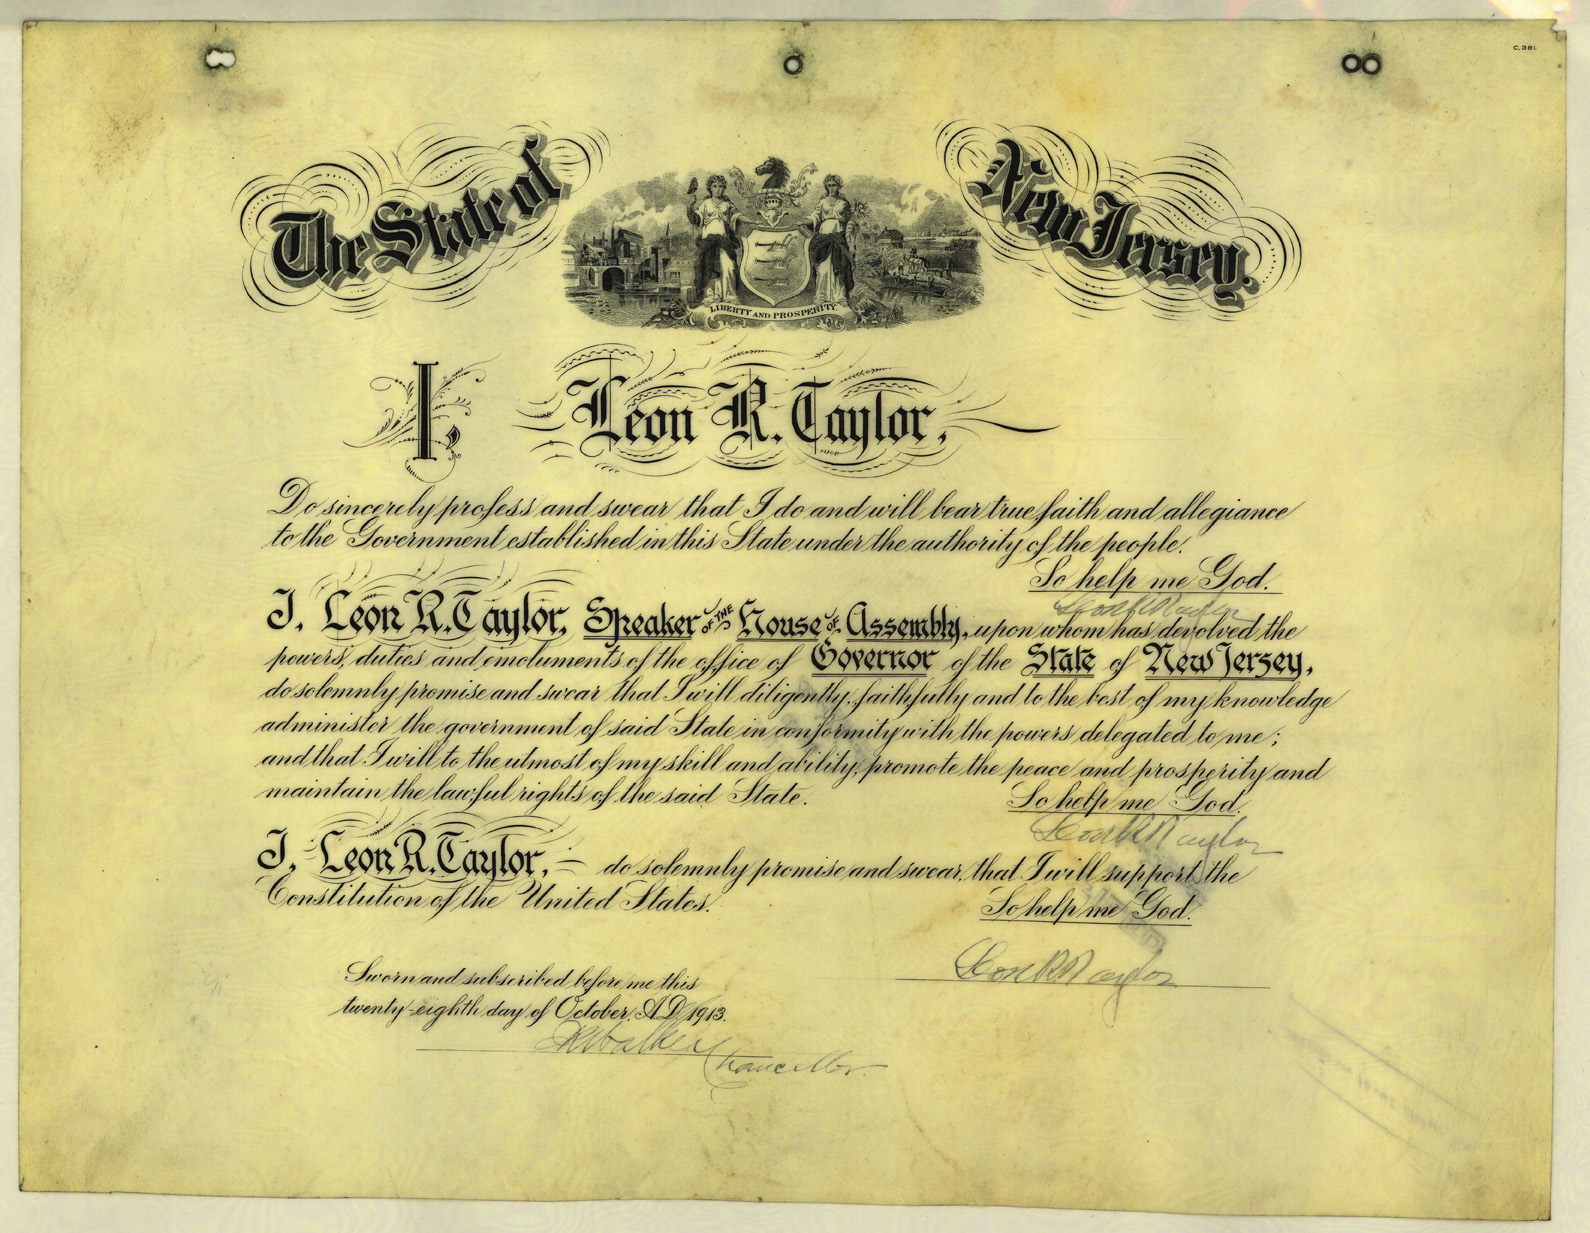 C. 381.
The State of New Jersey.
LIBERTY AND PROSPERITY.
I, Leon R. Taylor,
Do sincerely profess and swear that I do and will bear true faith and allegiance
to the Government established in this State under the authority of the people.
So help me God.
Leon R Taylor
I, Leon R. Taylor, Speaker OF THE House OF Assembly, upon whom has devolved the
powers, duties and emoluments of the office of Governor of the State of New Jersey,
do solemnly promise and swear that I will diligently, faithfully and to the best of my knowledge
administer the government of said State in conformity with the powers delegated to me;
and that I will to the utmost of my skill and ability, promote the peace and prosperity and
maintain the lawful rights of the said State.
So help me God.
Leon R Taylor
I, Leon R. Taylor, — do solemnly promise and swear, that I will support the
Constitution of the United States.
So help me God.
Leon R Taylor
Sworn and subscribed before me this
twenty-eighth day of October, A.D. 1913.
Walker
Chancellor